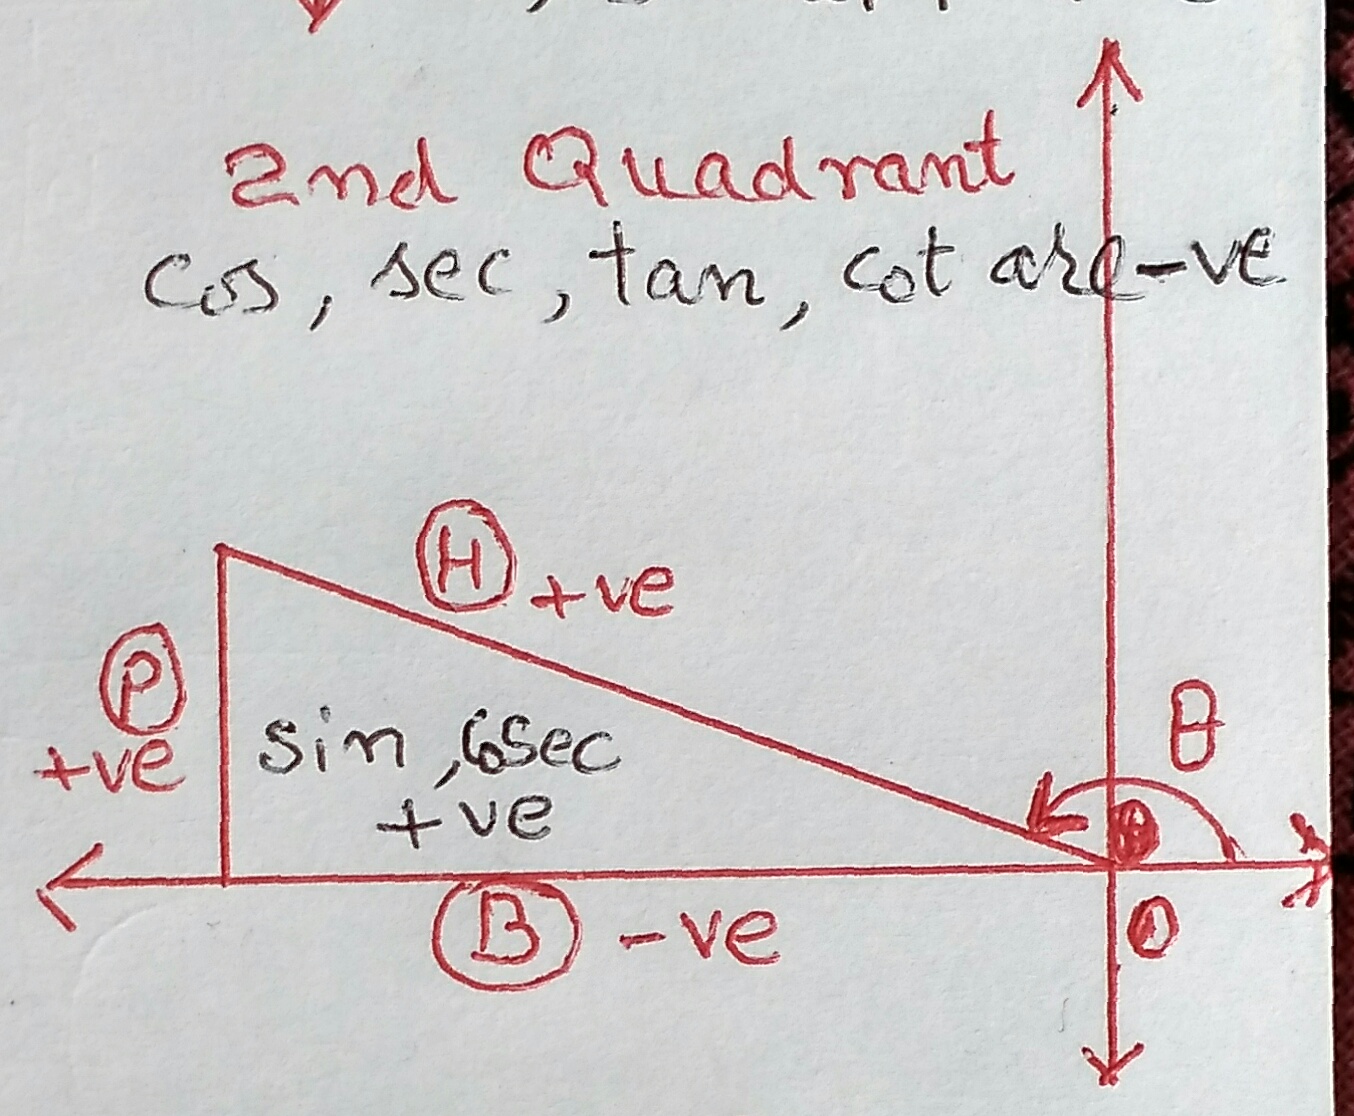 2nd Quadrant
cos, sec, tan, cot are -ve
H +ve
P
+ve
sin, cosec
+ve
θ
B -ve
O